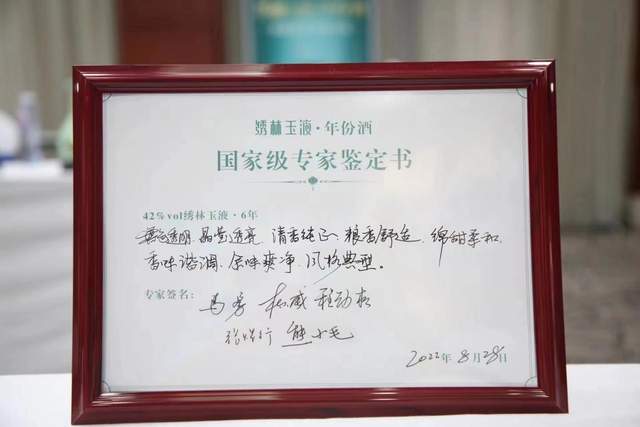 绣林玉液·年份酒
国家级专家鉴定书
42%vol绣林玉液·6年
透明、晶莹透亮、清香纯正、粮香舒适、绵甜柔和、
香味谐调、余味爽净、风格典型。
专家签名：
2022年8月28日